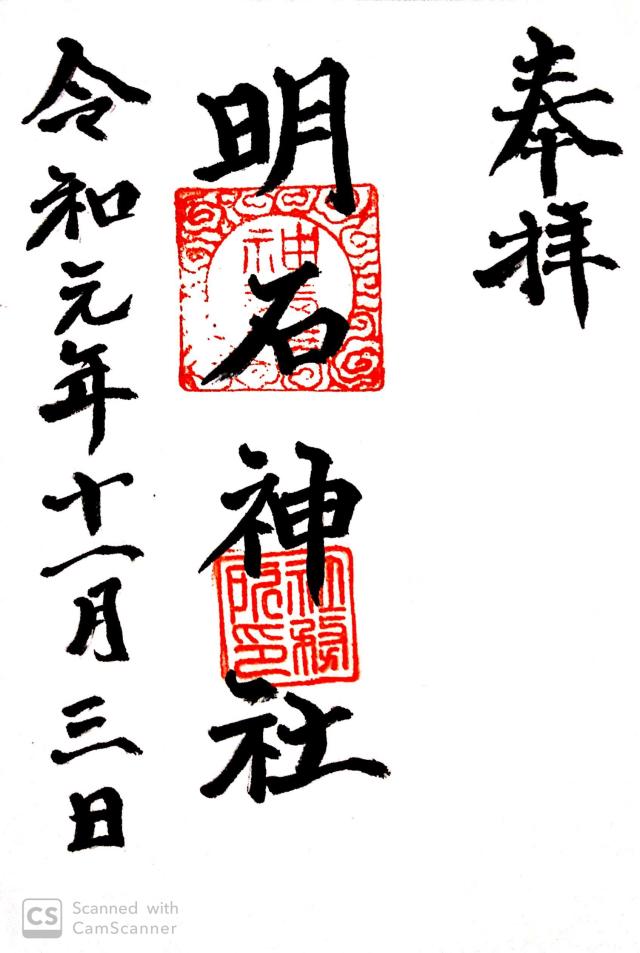 奉拝
明石神社
令和元年十一月三日
社務所印
CS Scanned with
CamScanner